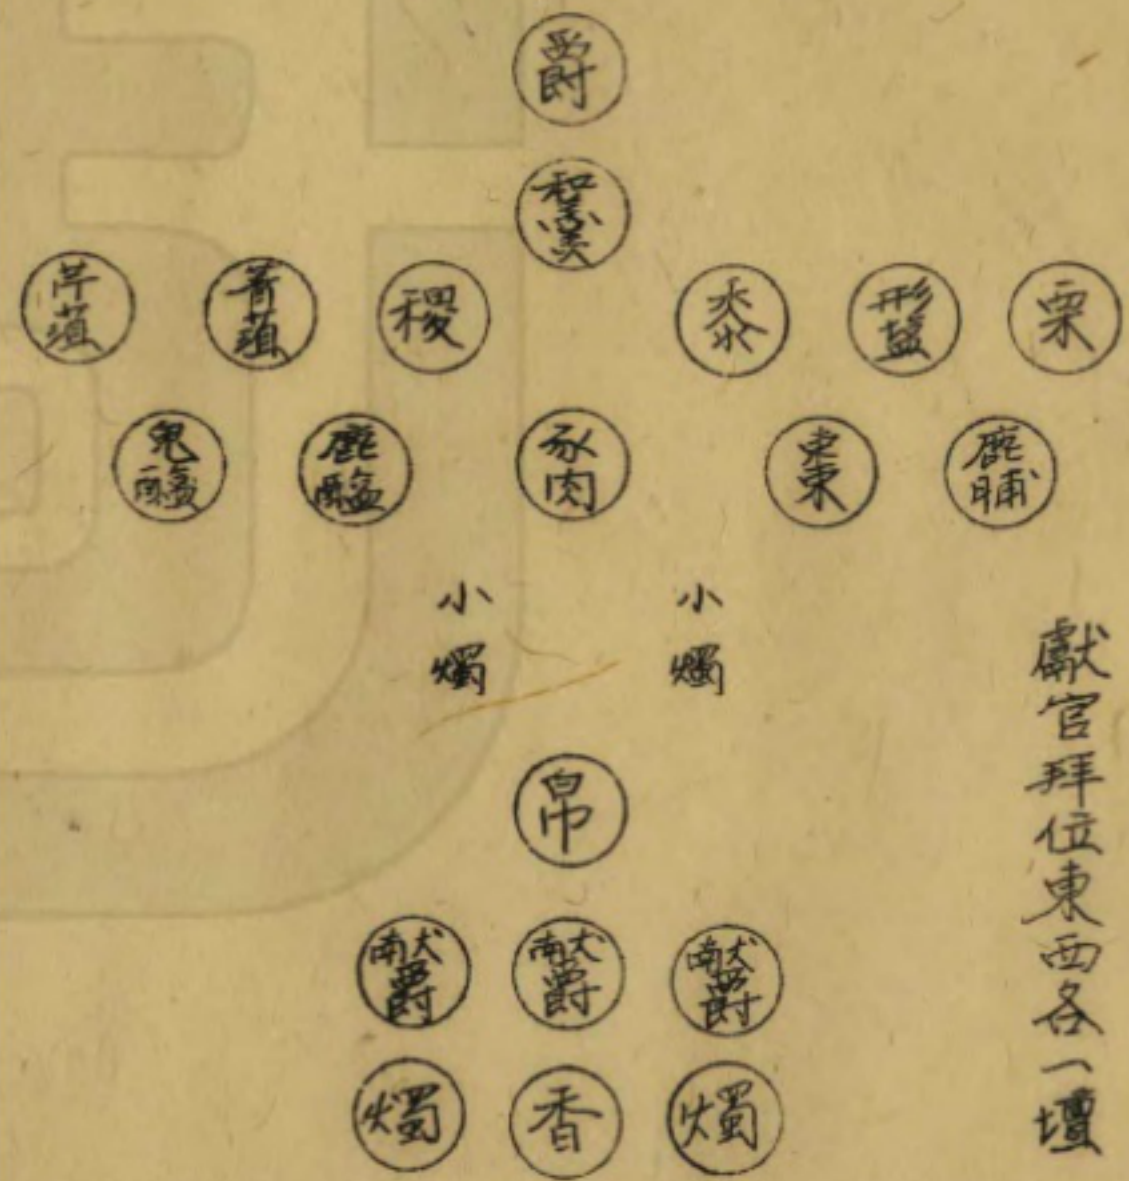 爵
和羹
芹菹 菁菹 稷 黍 形鹽 栗
兔醢 鹿醢 豕肉 棗 鹿脯
小燭 小燭
帛
献爵 献爵 献爵
燭 香 燭
獻官拜位東西各一壇